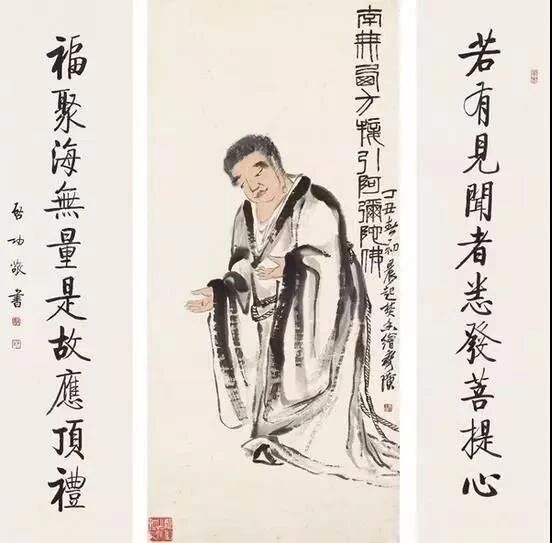 若有見聞者悉發菩提心
南無西方接引阿彌陀佛
丁丑春初晨起焚香繪齊璜
福聚海無量是故應頂禮
啟功敬書